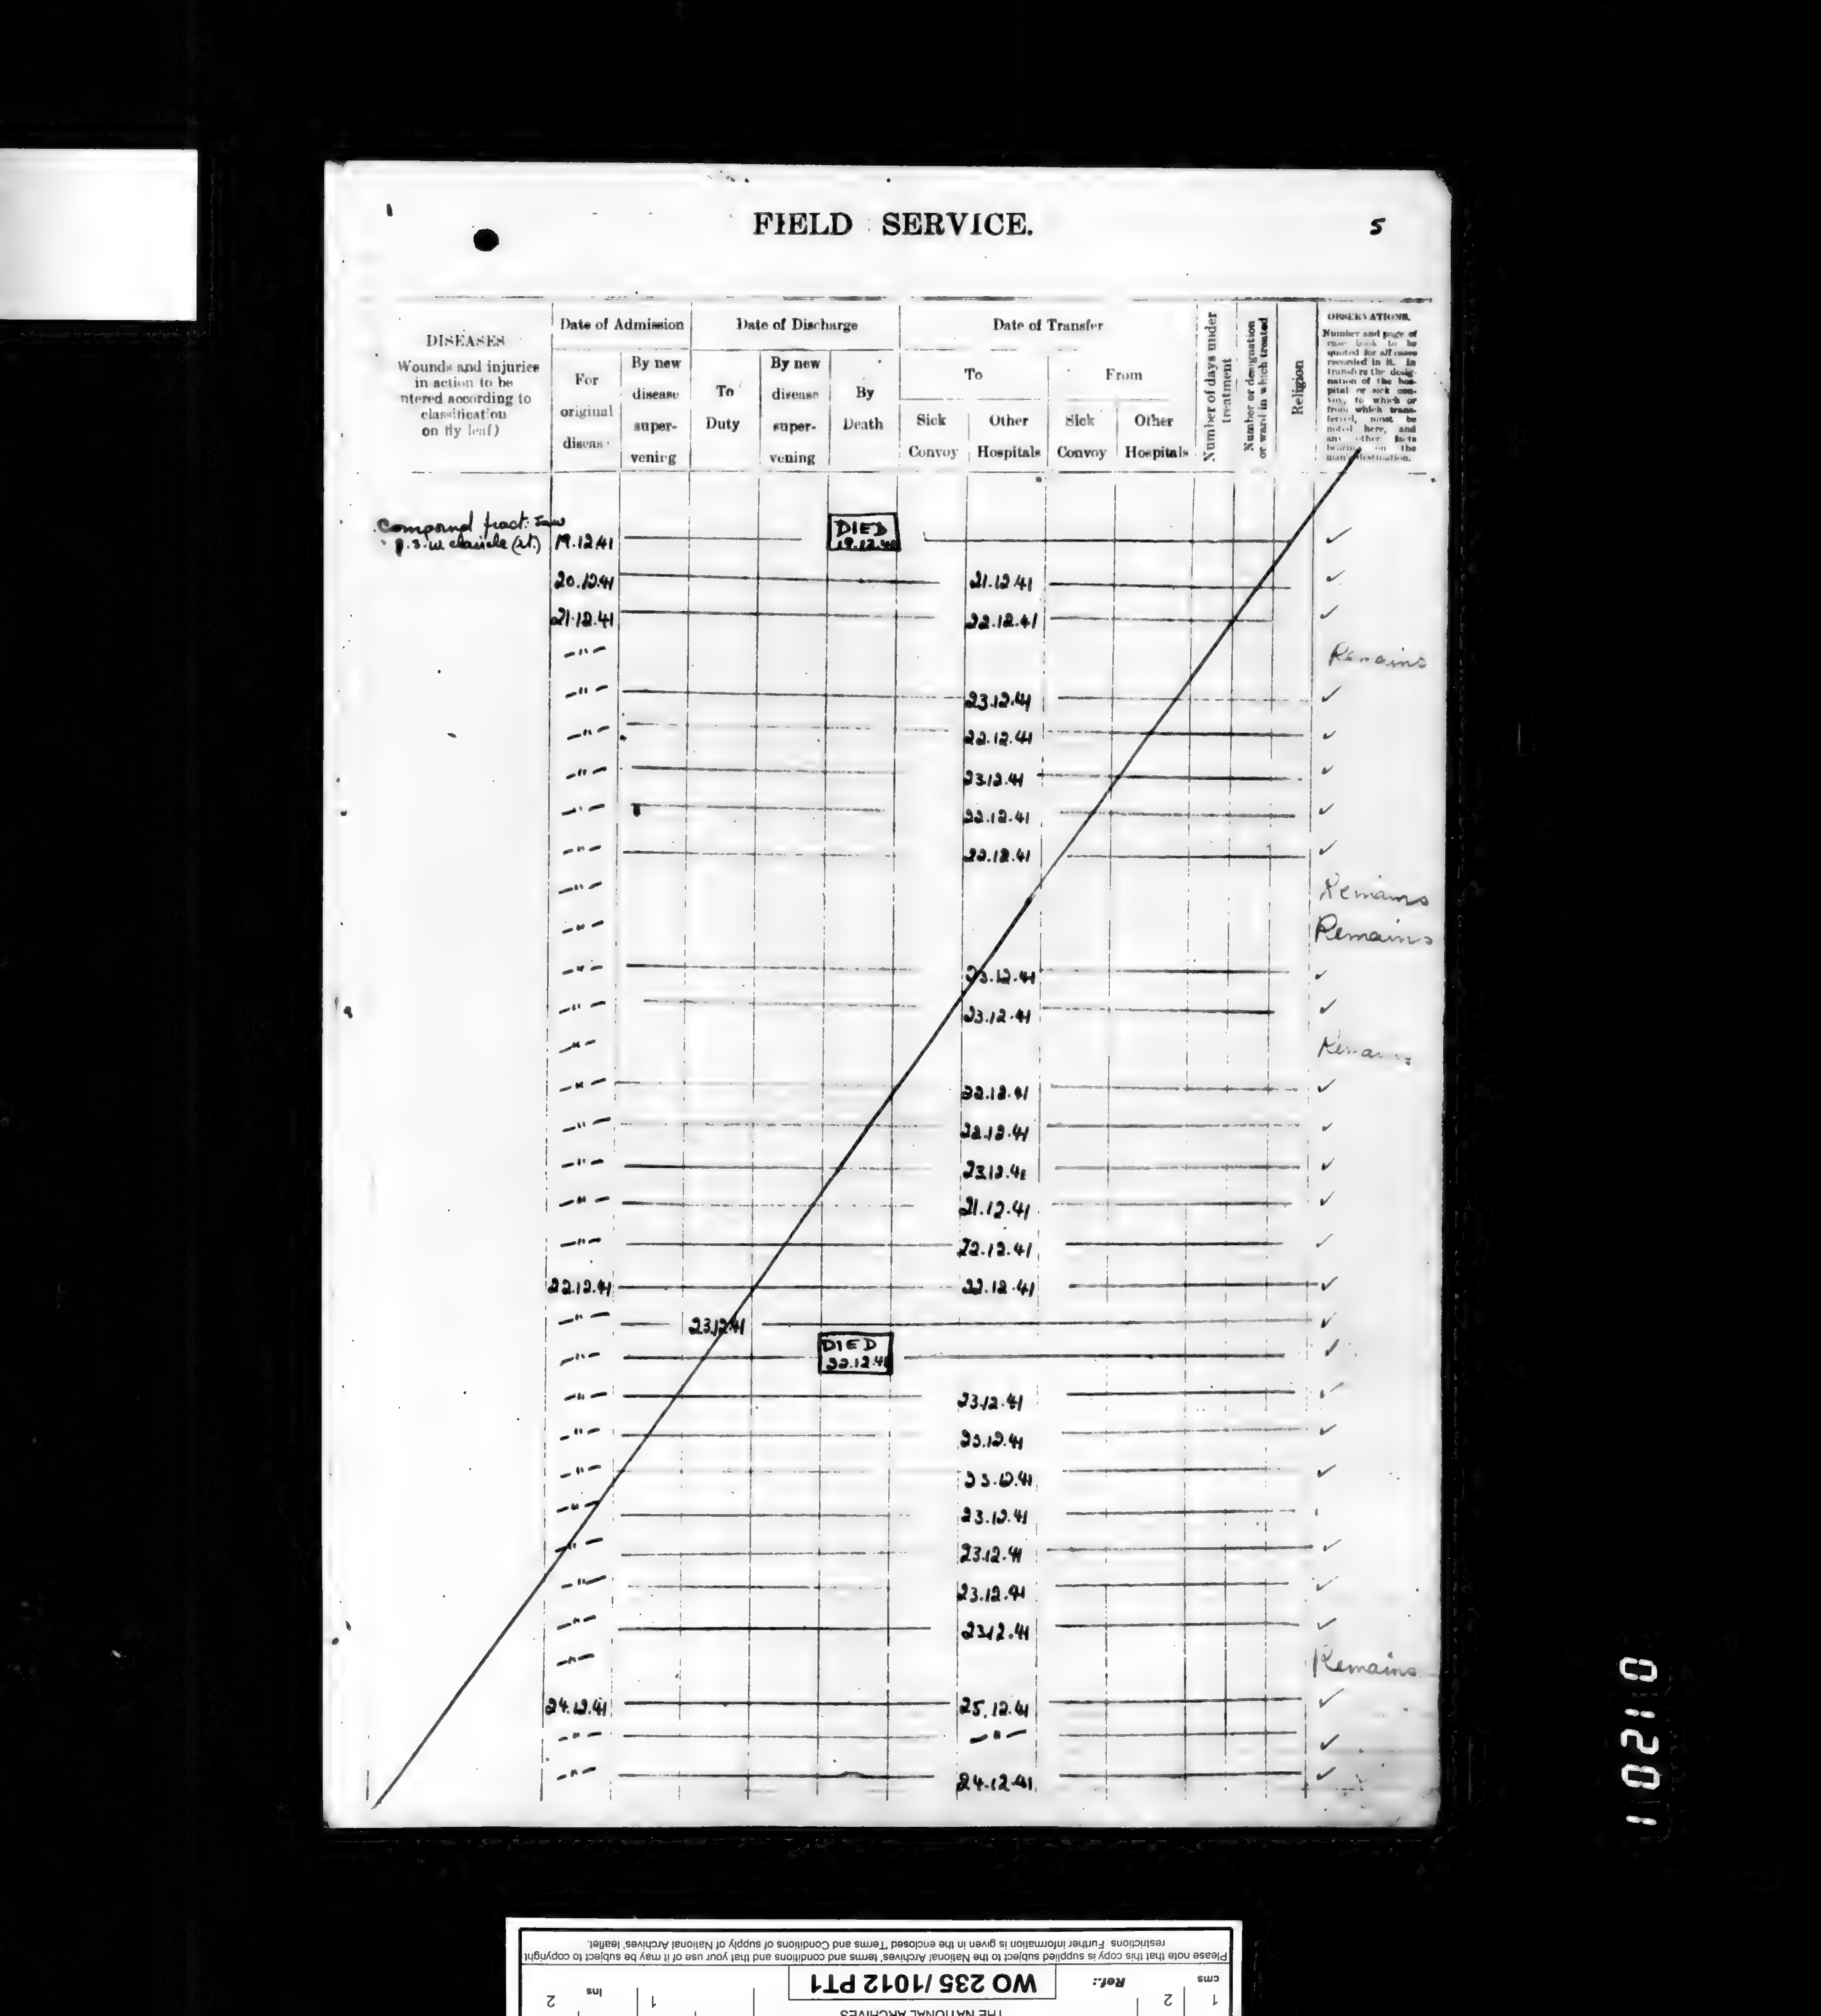 FIELD SERVICE.
5
DISEASES
Wounds and injuries
in action to be
ntered according to
classification
on fly leaf)
Date of Admission
For
original
disease
By new
disease
super-
vening
Date of Discharge
To
Duty
By new
disease
super-
vening
By
Death
Date of Transfer
To
Sick
Convoy
Other
Hospitals
From
Sick
Convoy
Other
Hospitals
Number of days under
treatment
Number or designation
or ward in which treated
Religion
OBSERVATIONS.
Number and page of
case book to be
quoted for all cases
recorded in it. In
transfers the desig-
nation of the hos-
pital or sick con-
voy, to which or
from which trans-
ferred, must be
noted here, and
any other facts
bearing on the
man's destination.
Compound fract: Jaw
g.s.w. clavicle (rt.) 19.12.41 DIED 19.12.41 ✓
20.12.41 21.12.41 ✓
21.12.41 22.12.41 ✓
-"- Remains
-"- 23.12.41 ✓
-"- 22.12.41 ✓
-"- 23.12.41 ✓
-"- 22.12.41 ✓
-"- 22.12.41 ✓
-"- Remains
-"- Remains
-"- 23.12.41 ✓
-"- 23.12.41 ✓
-"- Remains
-"- 22.12.41 ✓
-"- 22.12.41 ✓
-"- 23.12.41 ✓
-"- 21.12.41 ✓
-"- 22.12.41 ✓
22.12.41 22.12.41 ✓
-"- 23.12.41 ✓
-"- DIED 22.12.41 ✓
-"- 23.12.41 ✓
-"- 23.12.41 ✓
-"- 23.12.41 ✓
-"- 23.12.41
-"- 23.12.41 ✓
-"- 23.12.41 ✓
-"- 23.12.41 ✓
-"- Remains
24.12.41 25.12.41 ✓
-"- -"- ✓
-"- 24.12.41 ✓
01201
THE NATIONAL ARCHIVES
cms 1 2 Ref.: WO 235/1012 PT1 1 Ins 2
Please note that this copy is supplied subject to the National Archives' terms and conditions and that your use of it may be subject to copyright
restrictions. Further information is given in the enclosed 'Terms and Conditions of supply of National Archives' leaflet.